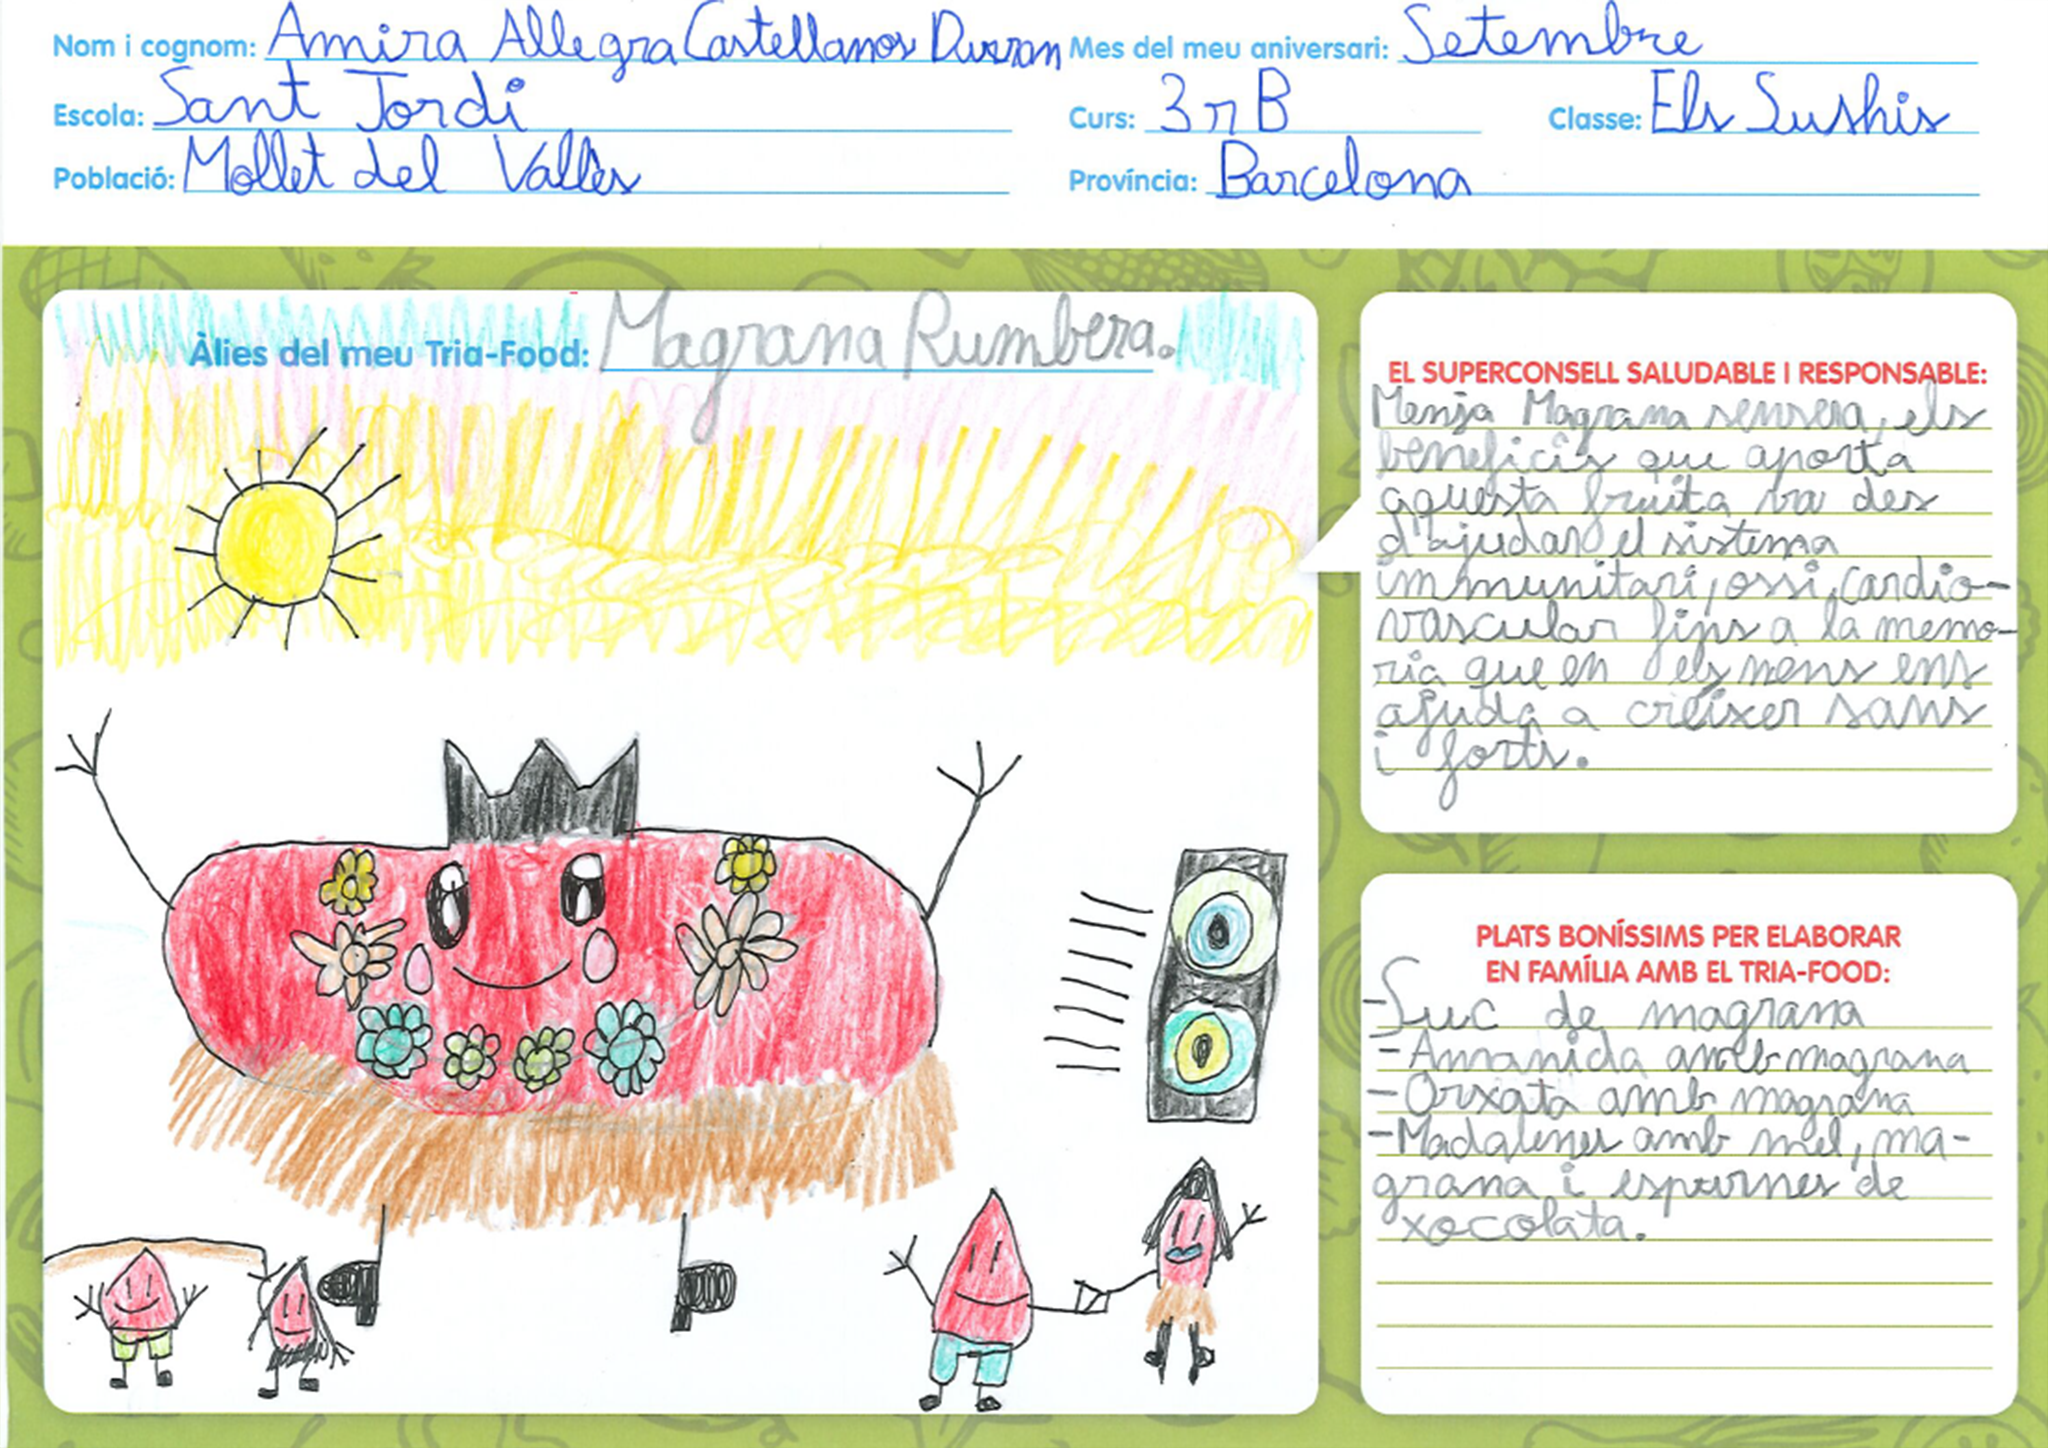 Nom i cognom: Amira Allegra Castellanos Duran Mes del meu aniversari: Setembre
Escola: Sant Jordi Curs: 3r B Classe: Els Sushis
Població: Mollet del Vallès Província: Barcelona
Àlies del meu Tria-Food: Magrana Rumbera.
EL SUPERCONSELL SALUDABLE I RESPONSABLE:
Menja Magrana sensera, els
beneficis que aporta
aquesta fruita va des
d'ajudar el sistema
immunitari, ossi, cardio-
vascular fins a la memo-
ria que en els nens ens
ajuda a créixer sans
i forts.
PLATS BONÍSSIMS PER ELABORAR
EN FAMÍLIA AMB EL TRIA-FOOD:
-Suc de magrana
-Amanida amb magrana
-Orxata amb magrana
-Madalenes amb mel, ma-
grana i espurnes de
xocolata.